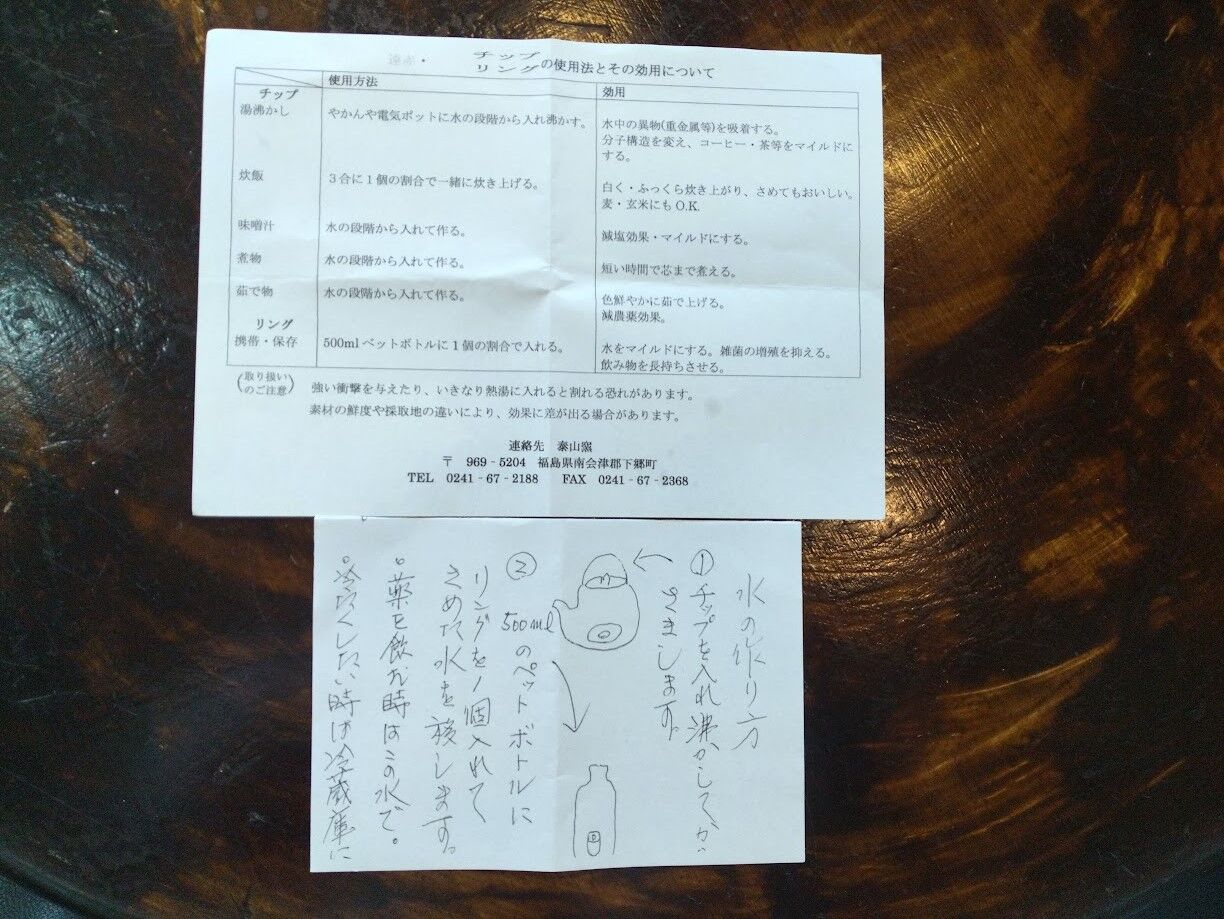 遠赤・チップ リングの使用法とその効用について
使用方法 効用
チップ
湯沸かし やかんや電気ポットに水の段階から入れ沸かす。 水中の異物(重金属等)を吸着する。
分子構造を変え、コーヒー・茶等をマイルドに
する。
炊飯 3合に1個の割合で一緒に炊き上げる。 白く・ふっくら炊き上がり、さめてもおいしい。
麦・玄米にもO.K.
味噌汁 水の段階から入れて作る。 減塩効果・マイルドにする。
煮物 水の段階から入れて作る。 短い時間で芯まで煮える。
茹で物 水の段階から入れて作る。 色鮮やかに茹で上げる。
減農薬効果。
リング
携帯・保存 500mlペットボトルに1個の割合で入れる。 水をマイルドにする。雑菌の増殖を抑える。
飲み物を長持ちさせる。
(取り扱いのご注意) 強い衝撃を与えたり、いきなり熱湯に入れると割れる恐れがあります。
素材の鮮度や採取地の違いにより、効果に差が出る場合があります。
連絡先 泰山窯
〒 969‐5204 福島県南会津郡下郷町
TEL 0241‐67‐2188 FAX 0241‐67‐2368
水の作り方
①チップを入れ沸かして、
さまします。
② 500mlのペットボトルに
リングを1個入れて
さめた水を移します。
。薬を飲む時はこの水で。
。冷たくしたい時は冷蔵庫に